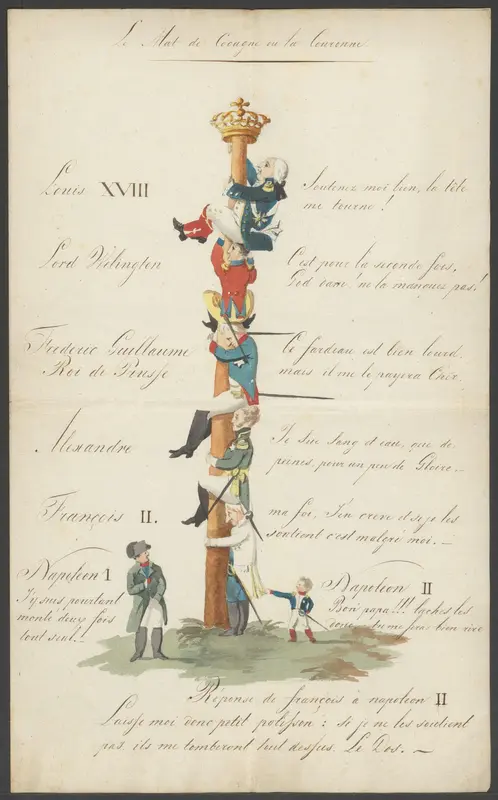 Le Mat de Cocagne ou la Couronne
Louis XVIII
Soutenez moi bien, la tête
me tourne !
Lord Wélington
C'est pour la seconde fois,
God dam, ne la manquez pas !
Frederic Guillaume
Roi de Prusse
Ce fardeau est bien lourd
mais il me le payera Cher.
Alexandre
Je Sue Sang et eau, que de
peines, pour un peu de Gloire.
François II.
ma foi, J'en crève et si je les
soutient c'est malgré moi.
Napoleon I
J'y suis pourtant
monté deux fois
tout seul.
Napoleon II
Bon papa !!! laches les
donc, tu me fera bien rire
Réponse de françois à napoleon II
Laisse moi donc petit polisson : Si je ne les soutient
pas, ils me tomberont tout dessus Le Dos.